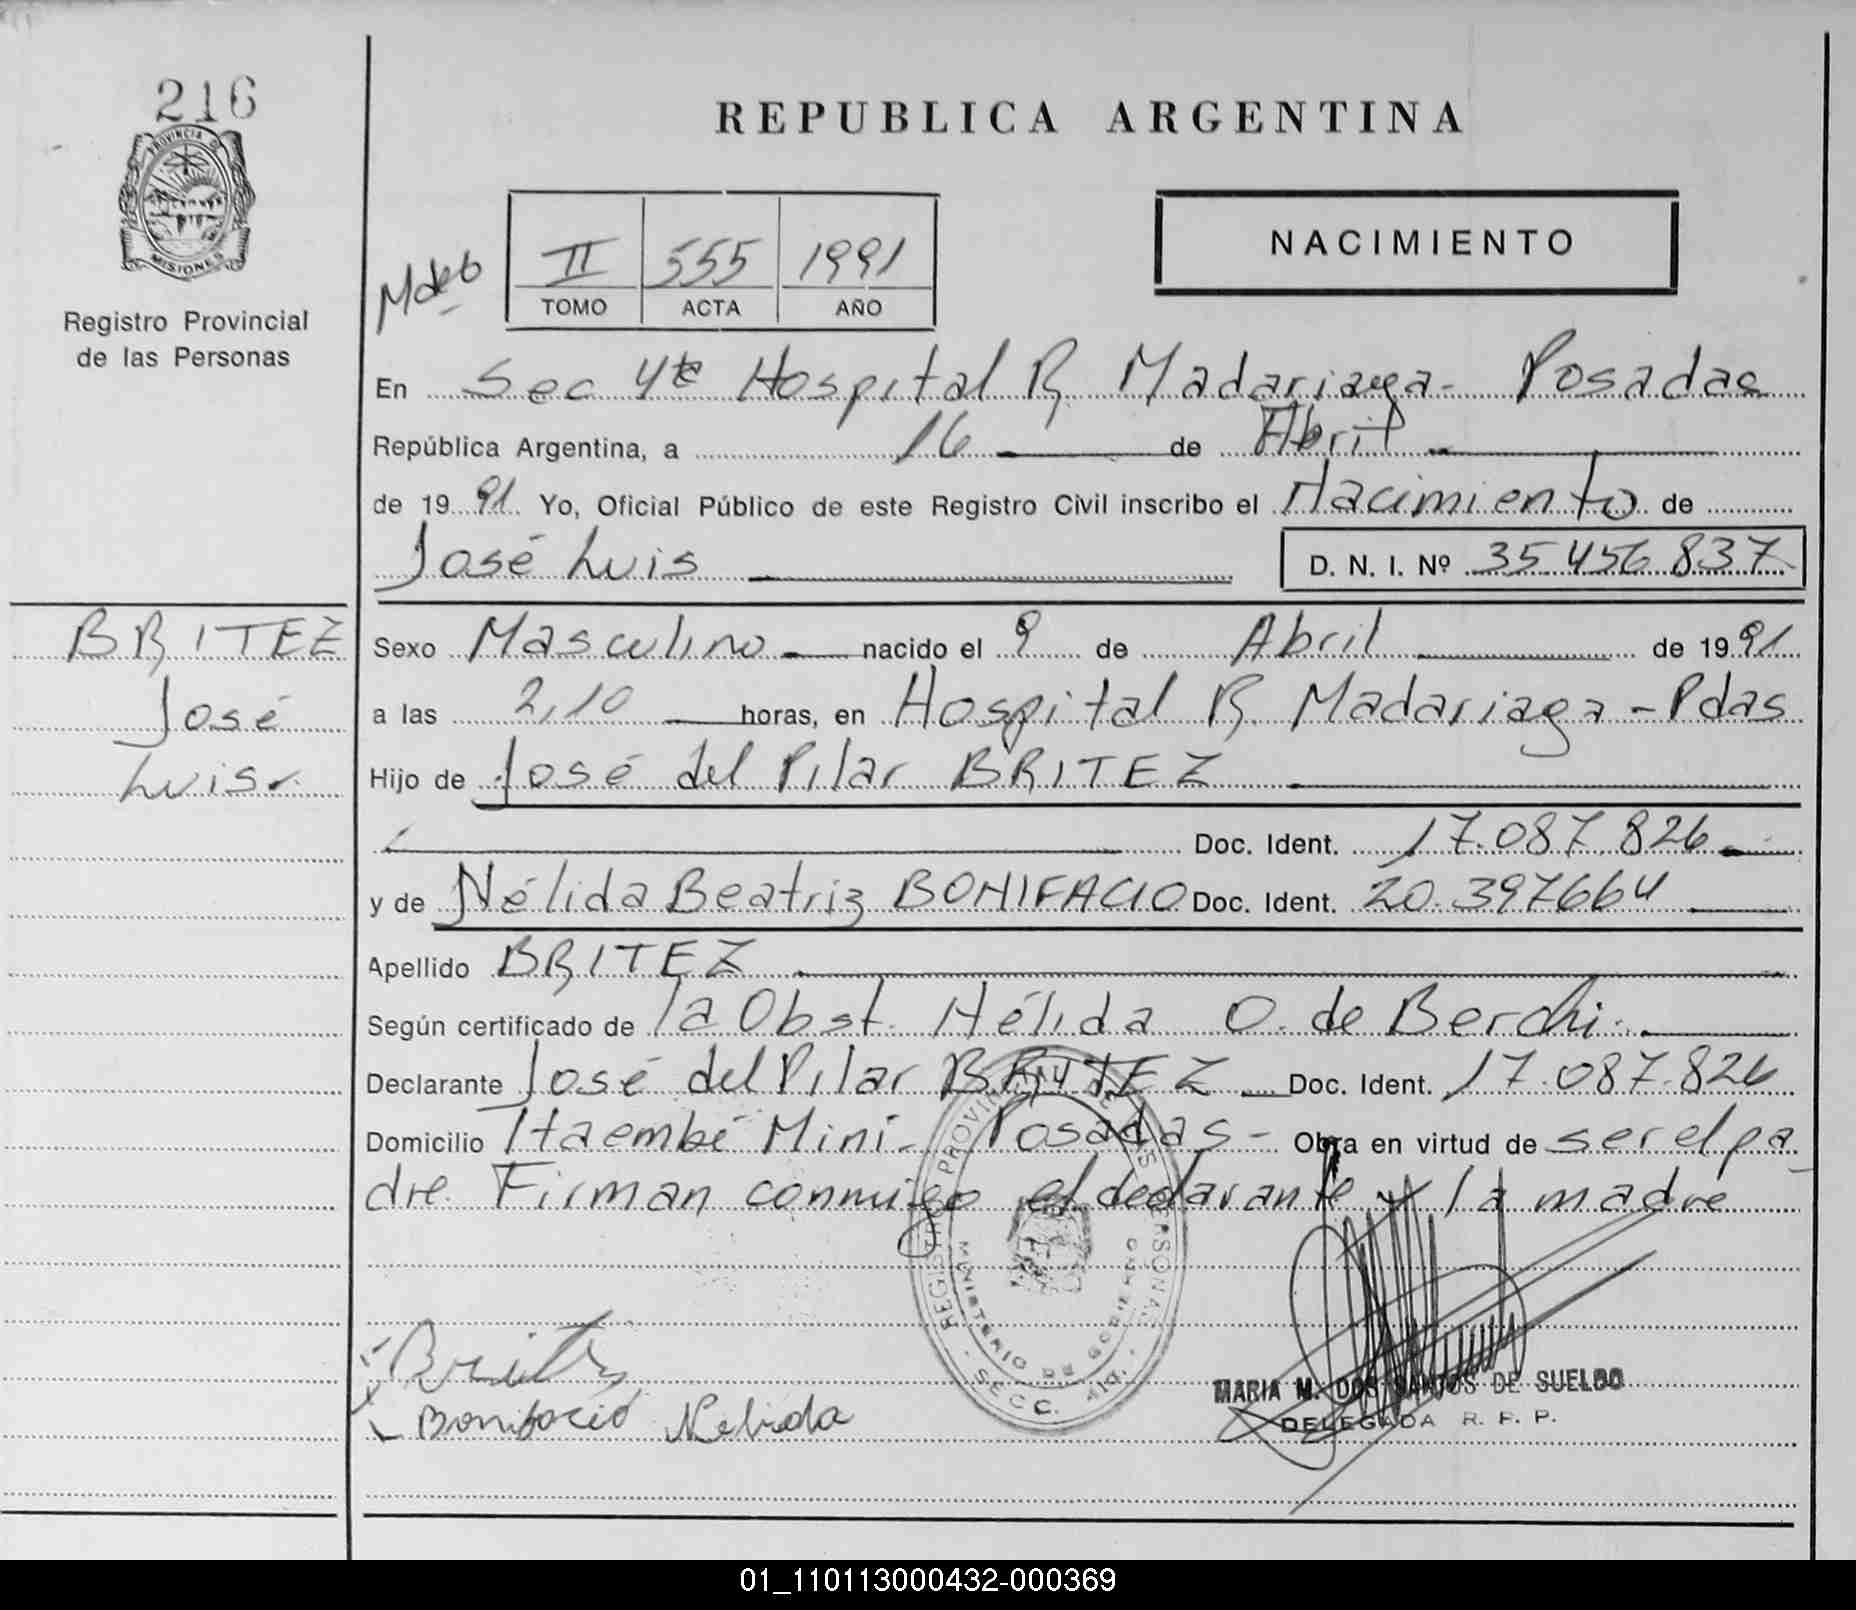 216
PROVINCIA DE
MISIONES
Registro Provincial
de las Personas
REPUBLICA ARGENTINA
II 555 1991
TOMO ACTA AÑO
NACIMIENTO
En Sec 4ta Hospital R. Madariaga - Posadas
República Argentina, a 16 de Abril
de 1991 Yo, Oficial Público de este Registro Civil inscribo el Nacimiento de
José Luis D. N. I. Nº 35 456 837
BRITEZ
José
Luis
Sexo Masculino nacido el 9 de Abril de 1991
a las 2,10 horas, en Hospital R. Madariaga - Pdas
Hijo de José del Pilar BRITEZ
Doc. Ident. 17.087.826
y de Nélida Beatriz BONIFACIO Doc. Ident. 20.397664
Apellido BRITEZ
Según certificado de la Obst. Nélida O. de Berchi
Declarante José del Pilar BRITEZ Doc. Ident. 17.087.826
Domicilio Itaembé Mini - Posadas - Obra en virtud de ser el pa
dre. Firman conmigo el declarante y la madre
REGISTRO PROVINCIAL DE LAS PERSONAS
MINISTERIO DE GOBIERNO
SECC. 4ta.
Britez
Bonifacio Nelida
MARIA M. DOS SANTOS DE SUELDO
DELEGADA R. P. P.
01_110113000432-000369